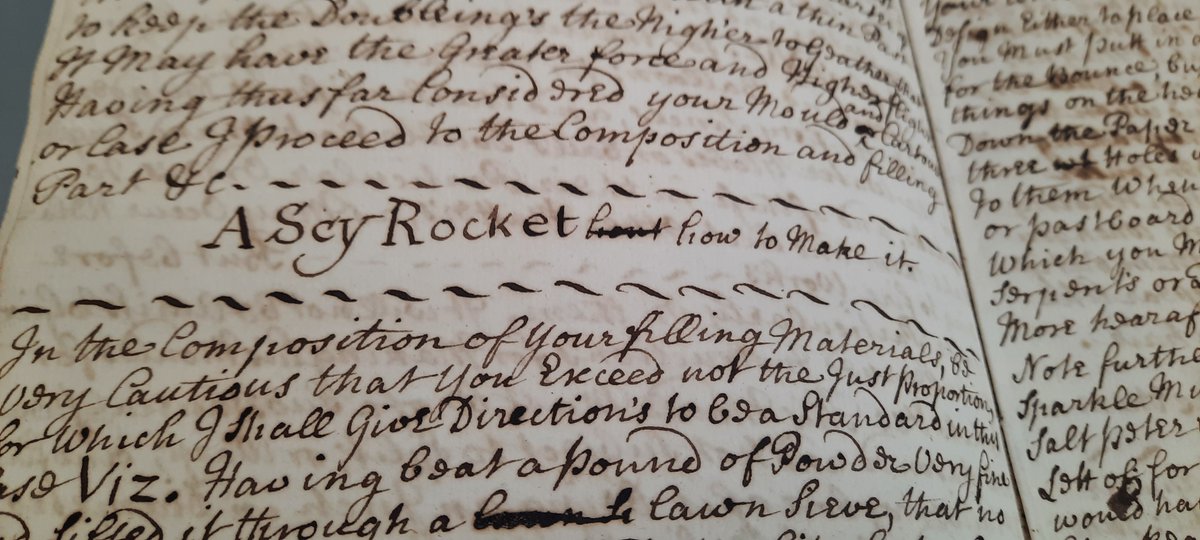 to keep the Doubleing's the Nigher to Geather that
It May have the Greater force and Higher flight
Having thus far Considered your Mould and or Cartouch
or Case I Proceed to the Composition and filling
Part &c.
A Scy Rocket how to Make it.
In the Composition of Your filling Materials, be
Very Cautious that You Exceed not the Just Proportions
for Which I Shall Give Direction's to be a Standard in this
Viz. Having beat a Pound of Powder Very fine
it through a lawn Sieve, that no
Either to place
You Must putt in
for the Bounce,
things on the
Down the Paper
three Holes
To them When
or pastboard
Which you
Serpent's or
More
Note
Sparkle
Salt peter
Sett off for
would